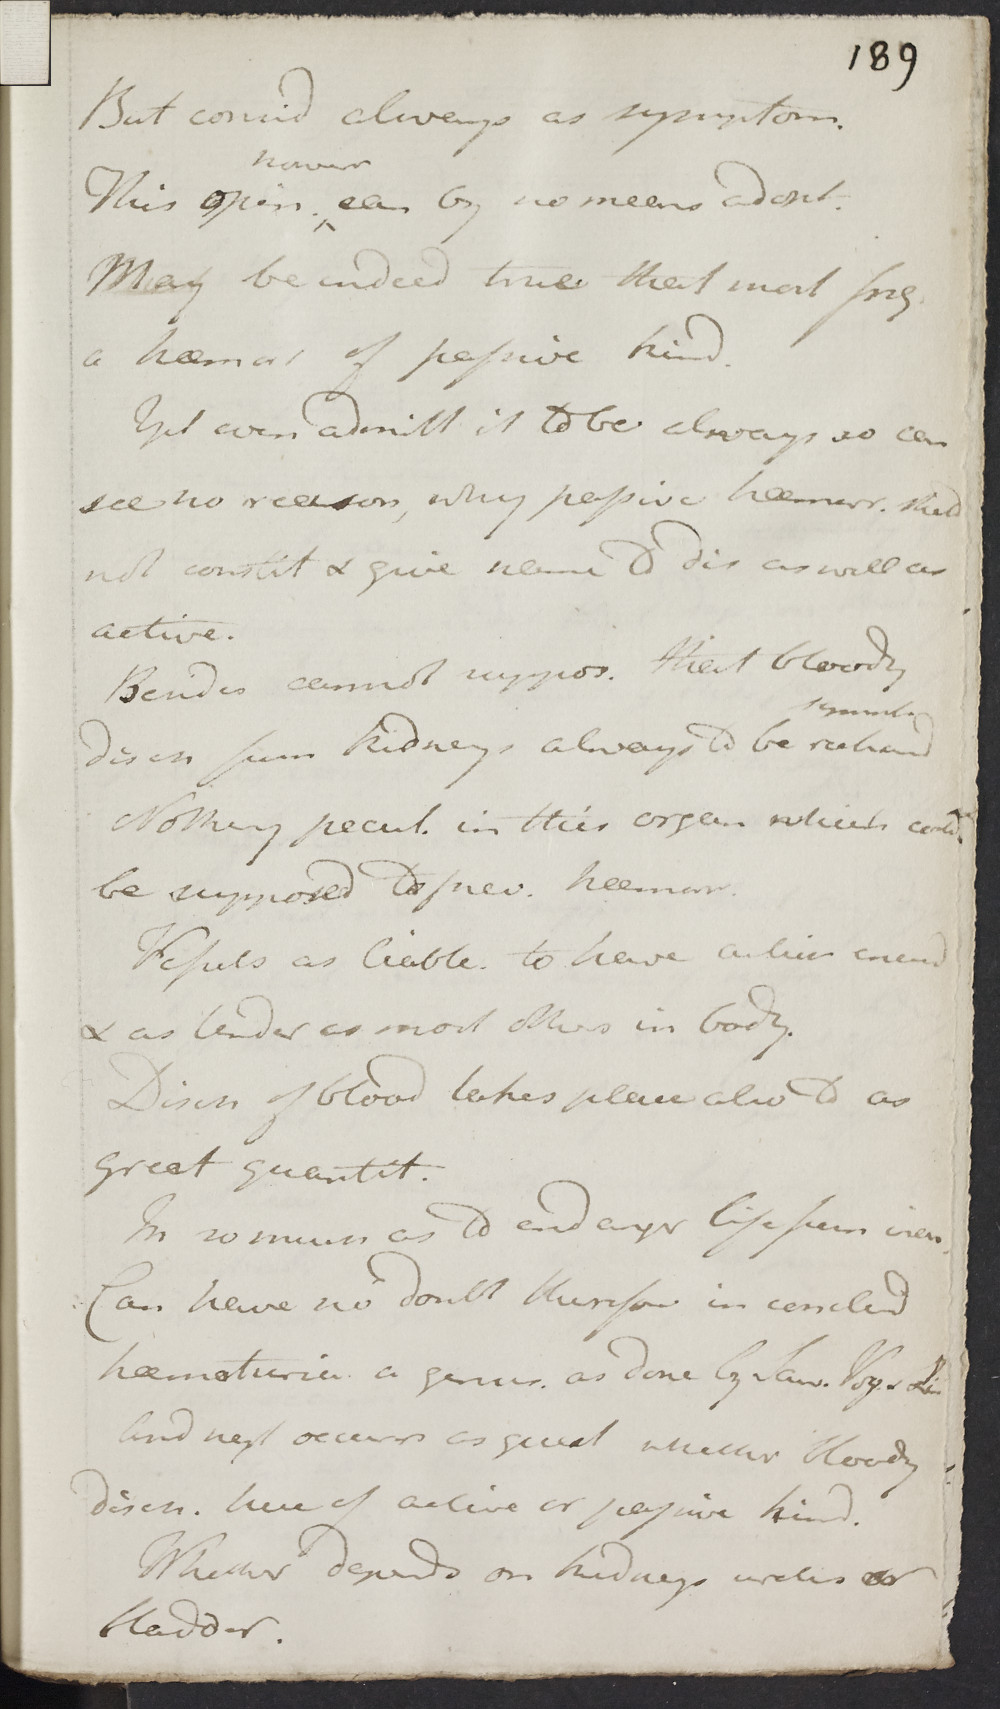 189
But consid always as symptom.
howevr
This opin. can by no means adopt.
May be indeed true that most freq.
a hæmor of passive kind.
Yet even admitt it to be always so can
see no reason, why passive hæmorr. shud
not constit & give name to dis as well as
active.
Besides cannot suppos. that bloody
symptom
disch from kidneys always to be
Nothing pecul. in this organ which could
be supposed to prev. hæmorr.
Vessels as liable. to have action
& as tender as most others in body.
Disch of blood takes place also to as
great quantit.
In so much as to endanger life from
Can have no doubt therefor in consid
hæmaturia a genus. as done by Sauv. Vog. & Lin
And next occurs as quest whether bloody
disch. here of active or passive kind.
Whether depends on kidneys ureters or
bladder.